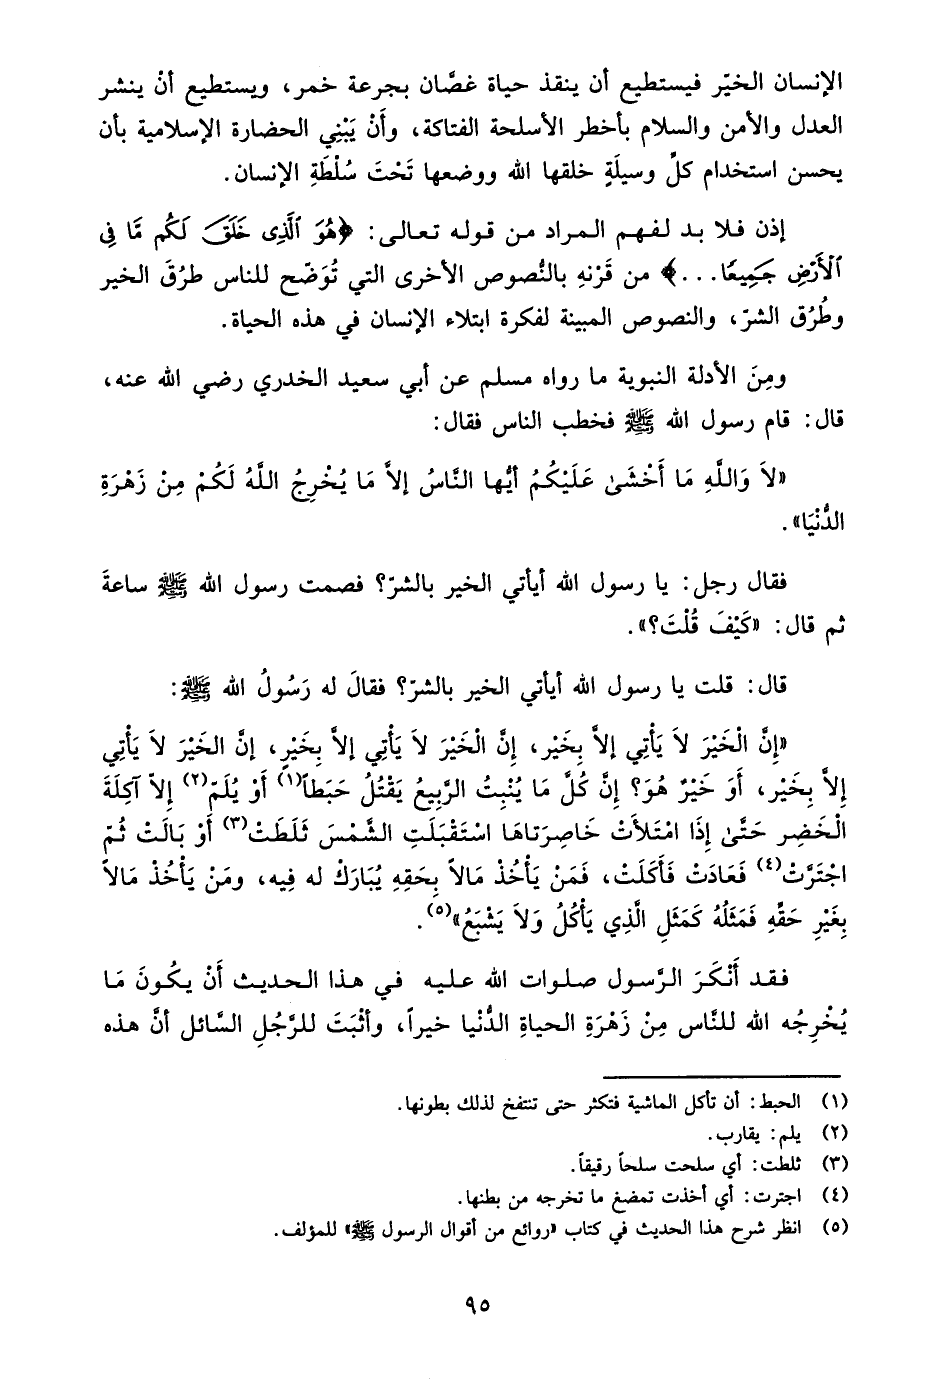 الإنسان الخيّر فيستطيع أن ينقذ حياة غصَّان بجرعة خمر، ويستطيع أنْ ينشر
العدل والأمن والسلام بأخطر الأسلحة الفتاكة، وأَنْ يَبْنِي الحضارة الإسلامية بأن
يحسن استخدام كلِّ وسيلَةٍ خلقها الله ووضعها تَحْتَ سُلْطَةِ الإنسان.
إذن فلا بد لفهم المراد من قوله تعالى: ﴿هُوَ ٱلَّذِى خَلَقَ لَكُم مَّا فِى
ٱلْأَرْضِ جَمِيعًا...﴾ من قَرْنهِ بالنُّصوص الأخرى التي تُوَضّح للناس طرُقَ الخير
وطُرُق الشرّ، والنصوص المبينة لفكرة ابتلاء الإنسان في هذه الحياة.
ومِنَ الأدلة النبوية ما رواه مسلم عن أبي سعيد الخدري رضي الله عنه،
قال: قام رسول الله ﷺ فخطب الناس فقال:
«لاَ وَاللَّهِ مَا أَخْشَىٰ عَلَيْكُمُ أيُّها النَّاسُ إلاَّ مَا يُخْرِجُ اللَّهُ لَكُمْ مِنْ زَهْرَةِ
الدُّنْيَا».
فقال رجل: يا رسول الله أيأتي الخير بالشرّ؟ فصمت رسول الله ﷺ ساعةَ
ثم قال: «كَيْفَ قُلْتَ؟».
قال: قلت يا رسول الله أيأتي الخير بالشرّ؟ فقالَ له رَسُولُ الله ﷺ:
«إِنَّ الْخَيْرَ لاَ يَأْتِي إلاَّ بِخَيْر، إنَّ الْخَيْرَ لاَ يَأْتِي إلاَّ بِخَيْرٍ، إنَّ الخَيْرَ لاَ يَأْتِي
إلاَّ بِخَيْر، أَوَ خَيْرٌ هُوَ؟ إنَّ كُلَّ مَا يُنْبِتُ الرَّبِيعُ يَقْتُلُ حَبَطاً(١) أَوْ يُلَمّ(٢) إلاّ آكِلَةَ
الْخَضِر حَتَّىٰ إذَا امْتَلأَتْ خَاصِرَتاهَا اسْتَقْبَلَتِ الشَّمْسَ ثَلَطَتْ(٣) أَوْ بَالَتْ ثُمّ
اجْتَرَّتْ(٤) فَعَادَتْ فَأَكَلَتْ، فَمَنْ يَأْخُذْ مَالاً بِحَقِهِ يُبَارَكْ له فِيه، ومَنْ يَأْخُذْ مَالاً
بِغَيْرِ حَقِّهِ فَمَثَلُهُ كَمَثَلِ الَّذِي يَأْكُلُ وَلاَ يَشْبَعُ»(٥).
فقد أَنْكَرَ الرَّسول صلوات الله عليه في هذا الحديث أَنْ يكُونَ مَا
يُخْرِجُه الله للنَّاس مِنْ زَهْرَةِ الحياةِ الدُّنْيا خيراً، وأثْبَتَ للرَّجُلِ السَّائل أنَّ هذه
(١) الحبط: أن تأكل الماشية فتكثر حتى تنتفخ لذلك بطونها.
(٢) يلم: يقارب.
(٣) ثلطت: أي سلحت سلحاً رقيقاً.
(٤) اجترت: أي أخذت تمضغ ما تخرجه من بطنها.
(٥) انظر شرح هذا الحديث في كتاب «روائع من أقوال الرسول ﷺ» للمؤلف.
٩٥